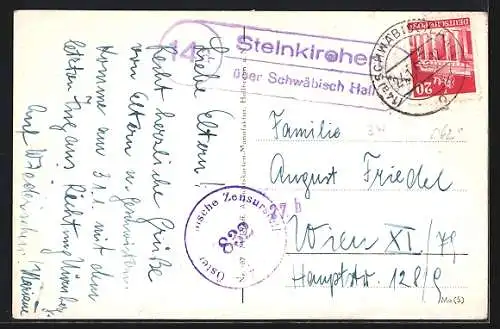 14a
Steinkirchen
über Schwäbisch Hall
(14a) SCHWÄBISCH
DEUTSCHE POST
20
Liebe Eltern!
Recht herzliche Grüße
von Eltern u. Geschwistern
komme am 31.1. mit dem
letzten Zug aus Richtung Nürnberg
Auf Wiedersehen
Mariane
Familie
August Friedel
Wien XI/79
Hauptstr. 128/9
Öster ische Zensurstell
832
27 b
Mo (S)